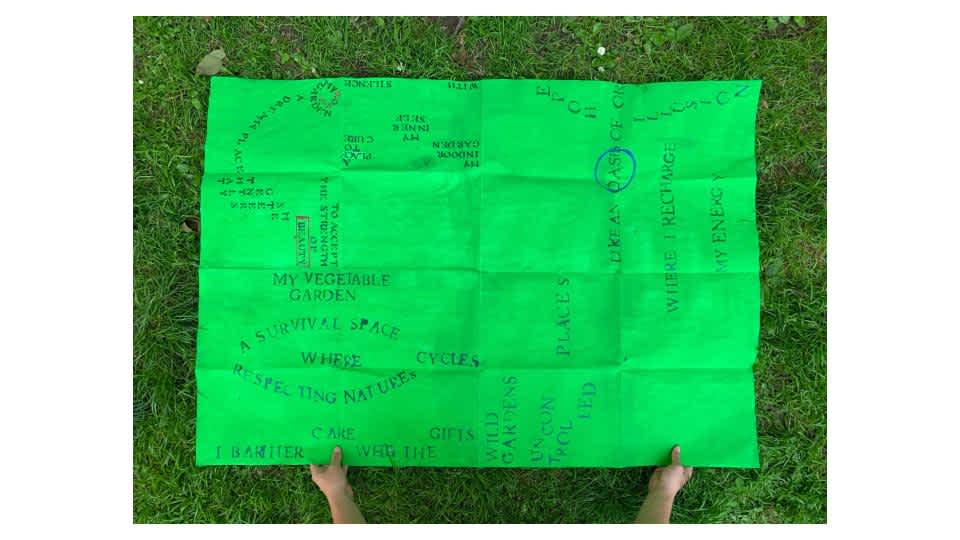 WITH SILENCE
MY INDOOR GARDEN
MY INNER SELF
PLACE TO CURE
OR A
PLACE THAT
GENTLY
STEERS
ME
TO ACCEPT
THE STRENGTH
OF
BEAUTY
MY VEGETABLE
GARDEN
A SURVIVAL SPACE
WHERE
CYCLES
RESPECTING NATURES
CARE
GIFTS
I
THE
WILD
GARDENS
UNCON
TROL
LED
PLACES
LIKE AN OASIS OF OR
HOPE
WHERE I RECHARGE
MY ENERGY